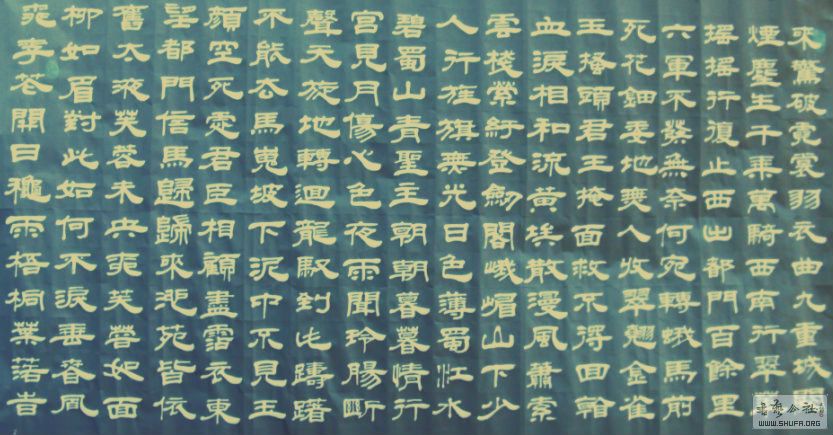 來驚破霓裳羽衣曲九重城闕
煙塵生千乘萬騎西南行翠華
搖搖行復止西出都門百餘里
六軍不發無奈何宛轉蛾馬前
死花鈿委地無人收翠翹金雀
玉搔頭君王掩面救不得回看
血淚相和流黃埃散漫風蕭索
雲棧縈紆登劍閣峨嵋山下少
人行旌旗無光日色薄蜀江水
碧蜀山青聖主朝朝暮暮情行
宮見月傷心色夜雨聞玲腸斷
聲天旋地轉迴龍馭到此躊躇
不能去馬嵬坡下泥中不見玉
顏空死處君臣相顧盡霑衣東
望都門信馬歸歸來池苑皆依
舊太液芙蓉未央芙蓉如面
柳如眉對此如何不淚垂春風
桃李花開日穐雨梧桐葉落時
WWW.SHUFA.ORG